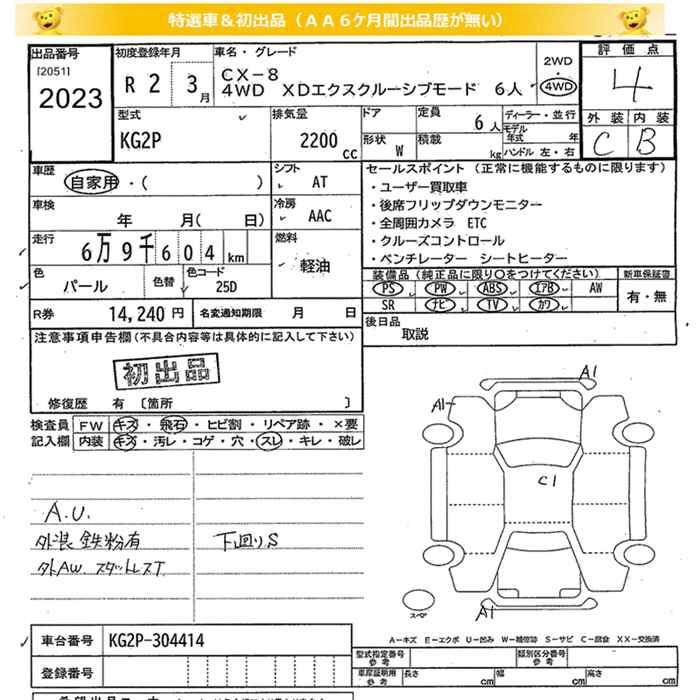 特選車＆初出品（ＡＡ６ケ月間出品歴が無い）
出品番号
[2051]
2023
初度登録年月
R 2 3 月
車名・グレード
CX-8
4WD XDエクスクルーシブモード 6人
2WD
4WD
評価点
4
外装 内装
C B
型式
KG2P
排気量
2200 cc
ドア
形状 W
定員
6 人
積載
kg
ディーラー・並行
モデル年式 年
ハンドル 左・右
車歴
自家用・( )
シフト
AT
車検
年 月( 日)
冷房
AAC
走行
6万9千604 km
燃料
軽油
色
パール
色替
色コード
25D
R券 14,240円
名変通知期限 月 日
セールスポイント（正常に機能するものに限ります）
・ユーザー買取車
・後席フリップダウンモニター
・全周囲カメラ ETC
・クルーズコントロール
・ベンチレーター シートヒーター
装備品（純正品に限り○をつけてください）
新車保証書
PS PW ABS エアB AW
SR ナビ TV カワ
有・無
後日品
取説
注意事項申告欄(不具合内容等は具体的に記入して下さい)
初出品
修復歴 有 〔箇所 〕
検査員記入欄
FW キズ・飛石・ヒビ割・リペア跡・×要
内装 キズ・汚レ・コゲ・穴・スレ・キレ・破レ
A.U.
外装 鉄粉有
外AW. スタットレスT
下廻りS
A1
A1
C1
A1
スペア
A－キズ E－エクボ U－凹み W－補修跡 S－サビ C－腐食 XX－交換済
車台番号 KG2P-304414
登録番号
型式指定番号
参考
類別区分番号
参考
車庫証明用
参考
長さ cm
幅 cm
高さ cm